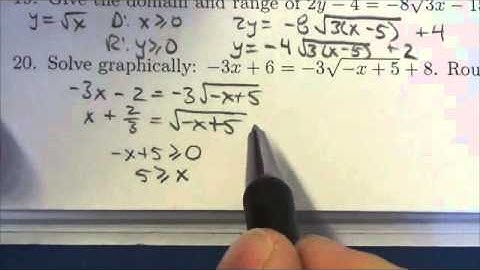 19. Give the domain and range of 2y − 4 = −8√3x − 15
y = √x D: x ≥ 0 2y = −8√3(x−5) + 4
R: y ≥ 0 y = −4√3(x−5) + 2
20. Solve graphically: −3x + 6 = −3√−x + 5 + 8. Rou
−3x − 2 = −3√−x+5
x + 2/3 = √−x+5
−x+5 ≥ 0
5 ≥ x